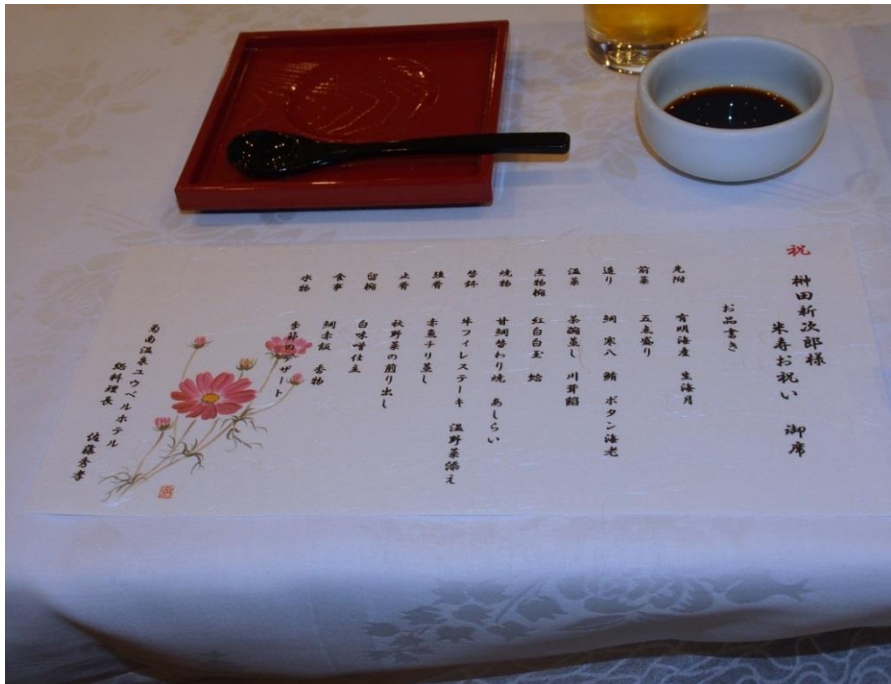 祝 榊田新次郎様
米寿お祝い 御席
お品書き
先附 有明海産 生海月
前菜 五点盛り
造り 鯛 寒八 鮪 ボタン海老
温菜 茶碗蒸し 川茸餡
煮物椀 紅白白玉 蛤
焼物 甘鯛替わり焼 あしらい
替鉢 牛フィレステーキ 温野菜添え
強肴 赤魚チリ蒸し
止肴 秋野菜の煎り出し
留椀 白味噌仕立
食事 鯛赤飯 香物
水物 季節のデザート
菊南温泉ユウベルホテル
総料理長 佐藤秀孝